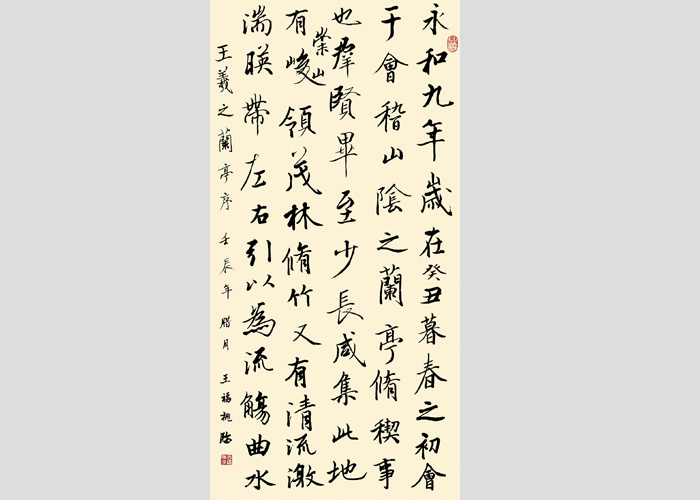 永和九年歲在癸丑暮春之初會
于會稽山陰之蘭亭脩稧事
也羣賢畢至少長咸集此地
有崇山峻領茂林脩竹又有清流激
湍暎帶左右引以為流觴曲水
王羲之蘭亭序 壬辰年 腊月 王福桃臨